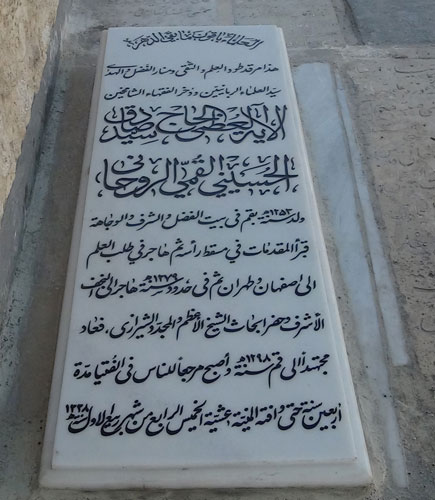 العلماء باقون ما بقی الدهر
هذا مرقد طود العلم والتقی ومنار الفضل والهدی
سید العلماء الربانیین وذخر الفقهاء الشامخین
الآیة العظمی الحاج سید صادق
الحسیني القمي الروحاني
ولد سنة ۱۲۵۳هـ بقم في بیت الفضل والشرف والوجاهة
قرأ المقدمات في مسقط رأسه ثم هاجر في طلب العلم
الی اصفهان وطهران ثم في حدود سنة ۱۲۷۹هـ هاجر الی النجف
الأشرف وحضر ابحاث الشیخ الأعظم والمجدد الشیرازي، فعاد
مجتهداً الی قم سنة ۱۲۹۸هـ وأصبح مرجعاً للناس في الفتیا مدة
اربعین سنة حتی وافته المنیة عشیة الخمیس الرابع من شهر ربیع الاول سنة ۱۳۳۸